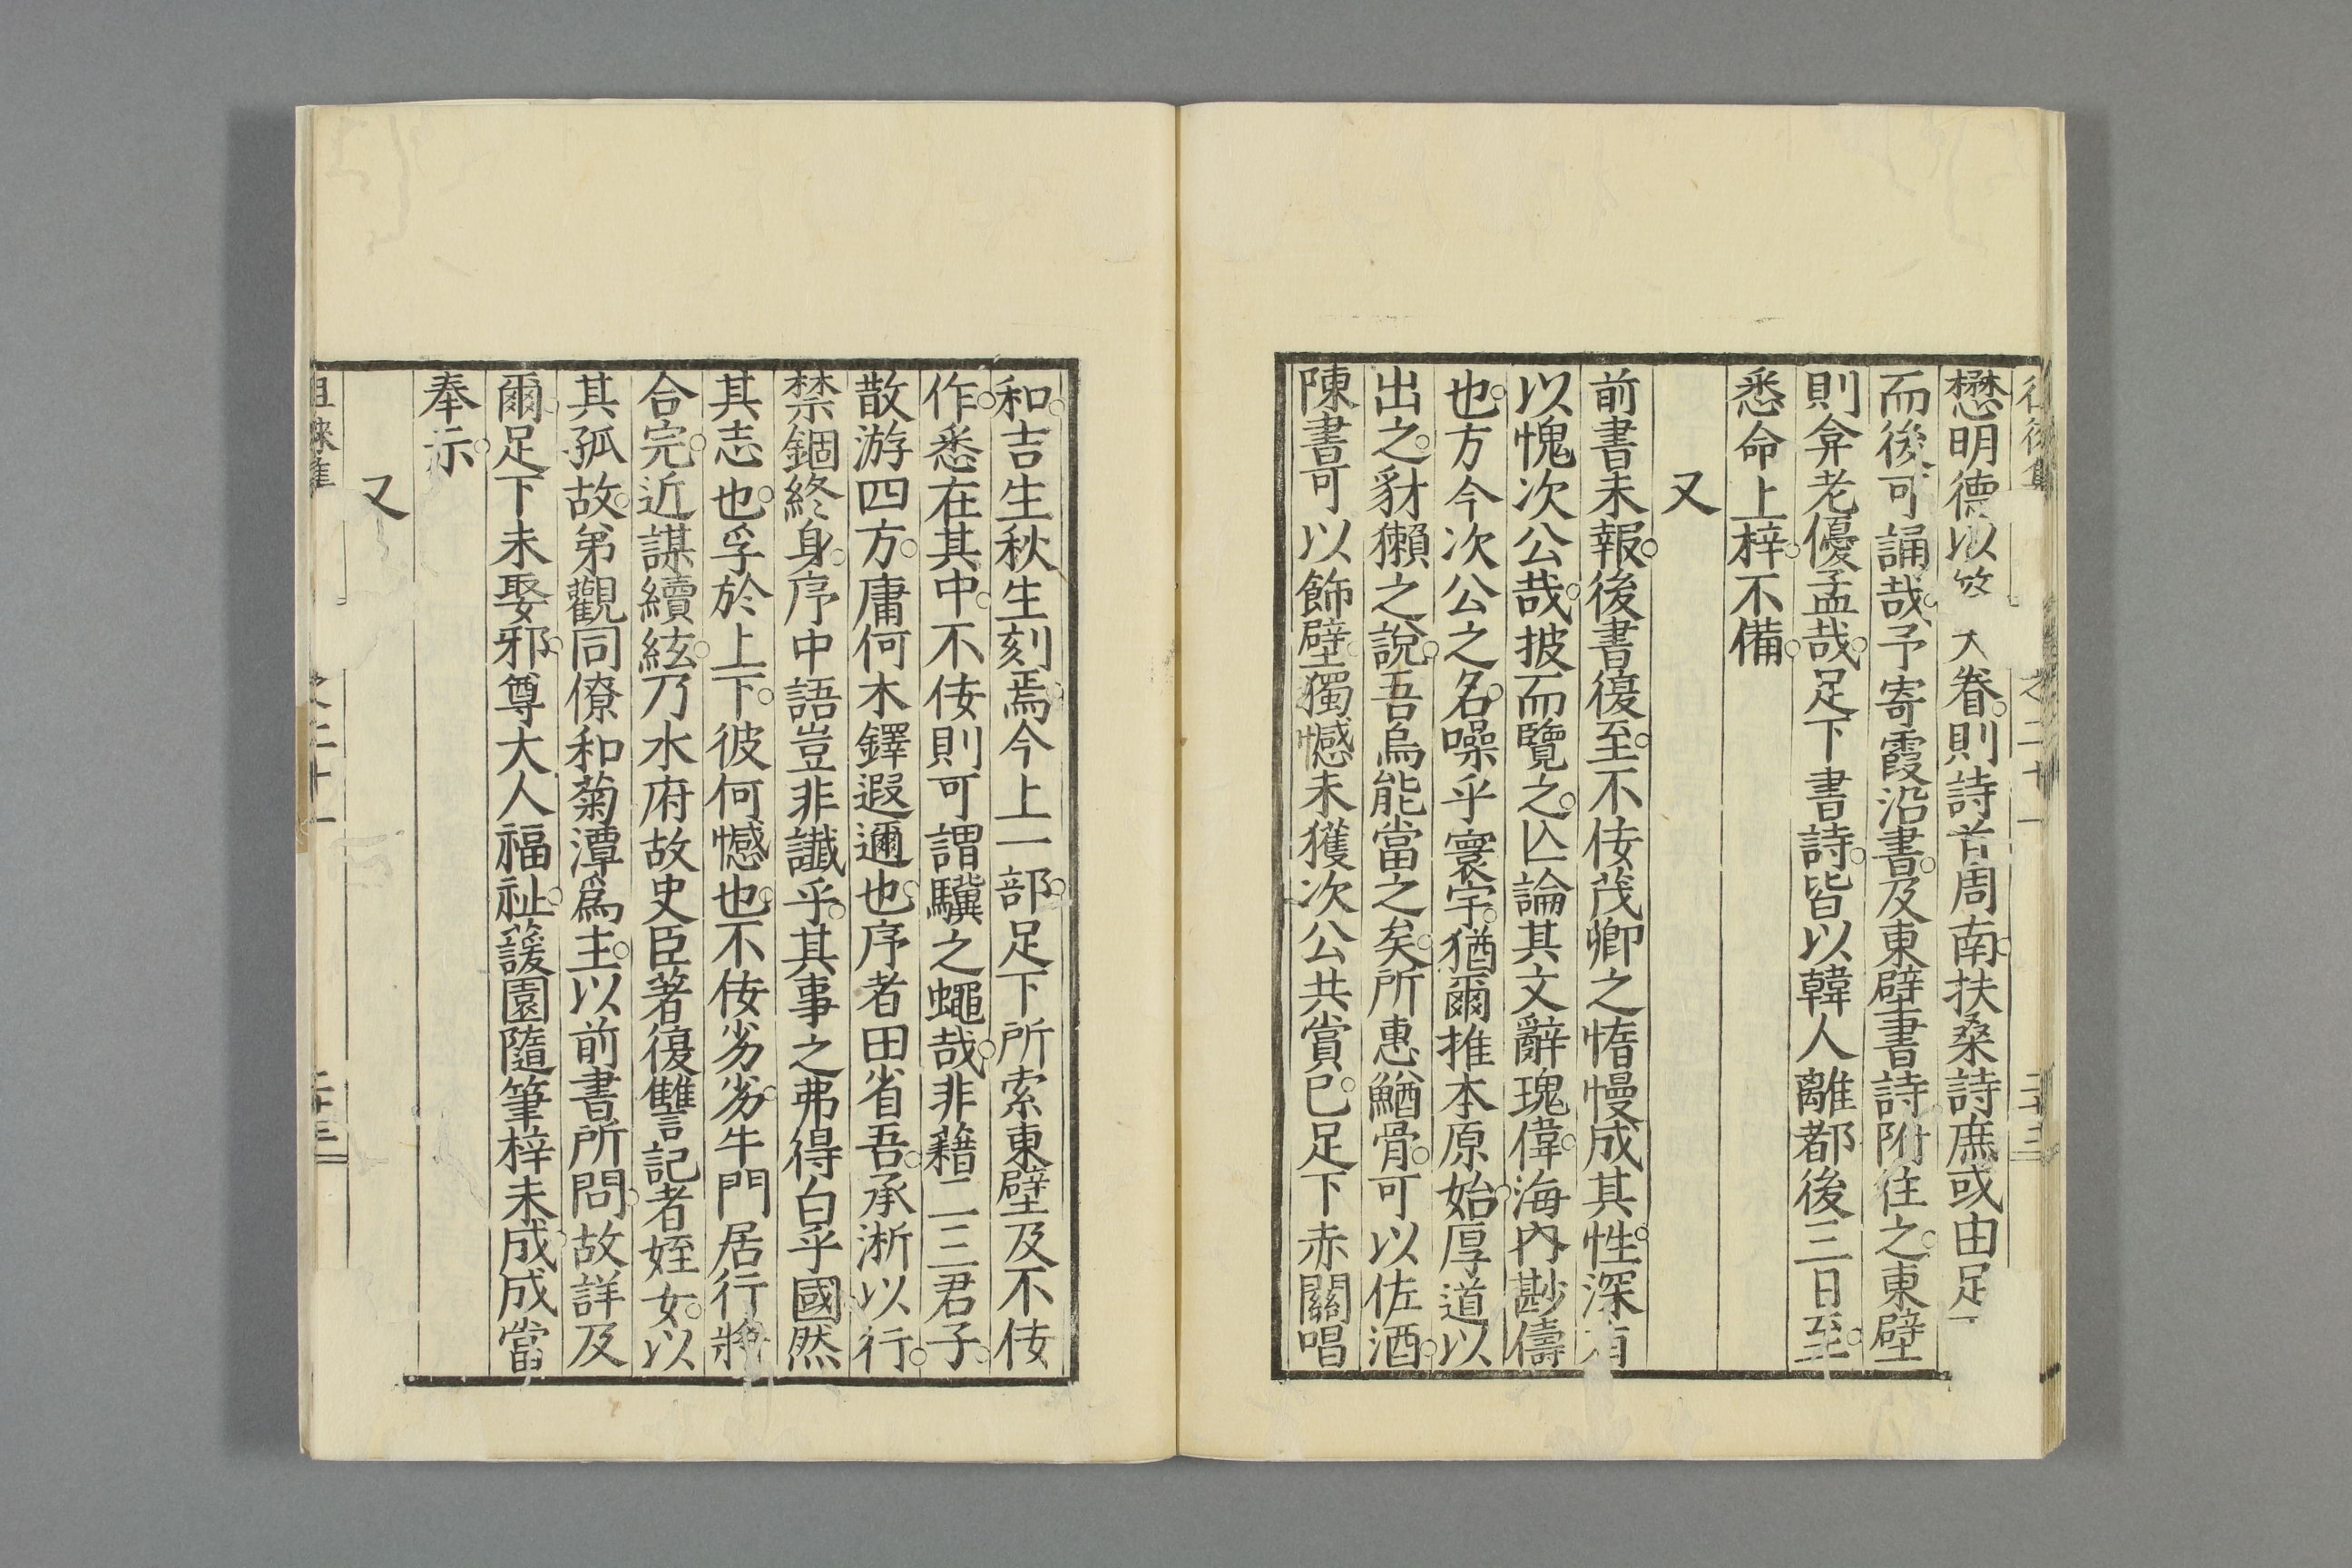 懋明德以 大眷則詩首周南扶桑詩庶或由足
而後可誦哉予寄霞沿書及東壁書詩附往之東壁
則弇老優孟哉足下書詩皆以韓人離都後三日至
悉命上梓不備
又
前書未報後書復至不佞茂卿之惰慢成其性深有
以愧次公哉披而覽之亾論其文辭瑰偉海內尠儔
也方今次公之名噪乎寰宇猶爾推本原始厚道以
出之豺獺之說吾烏能當之矣所惠鰌骨可以佐酒
陳書可以飾壁獨憾未獲次公共賞已足下赤關唱
和吉生秋生刻焉今上一部足下所索東壁及不佞
作悉在其中不佞則可謂驥之蠅哉非籍二三君子
散游四方庸何木鐸遐邇也序者田省吾承淅以行
禁錮終身序中語豈非讖乎其事之弗得白乎國然
其志也孚於上下彼何憾也不佞劣劣牛門居行將
合完近謀續絃乃水府故史臣著復讎記者姪女以
其孤故弟觀同僚和菊潭爲主以前書所問故詳及
爾足下未娶邪尊大人福祉蘐園隨筆梓未成成當
奉示
又